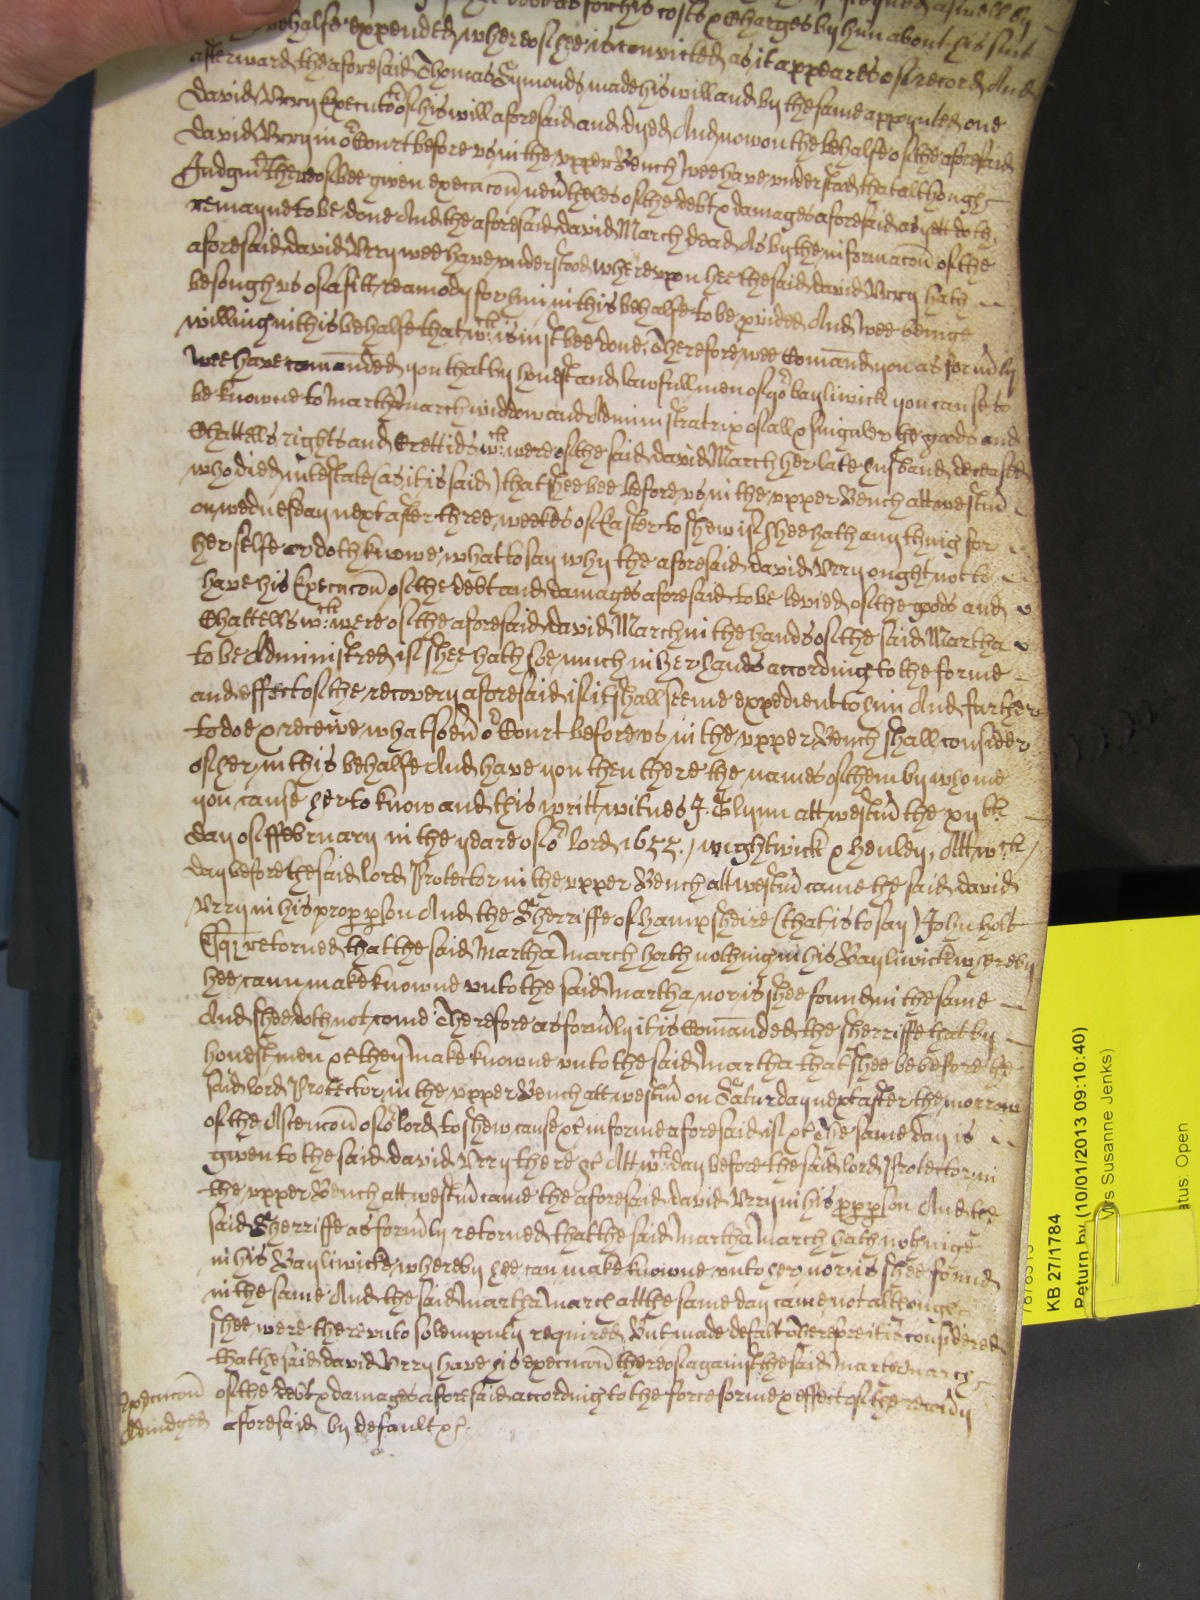 as for his costs & Charges by him about his suit
behalfe expended, whereof hee is convicted, as it appeares of record, And
afterward the aforesaid Thomas Symonds made his will and by the same appoynted one
David Urry Executor of his will aforesaid and dyed And now on the behalfe of the aforesaid
David Urry in or Court before us in the upper Bench wee have understood that although
Judgmt thereof bee given execucon nevtheles of the debt & damages aforesaid as yett doth
remayne to be done And the aforesaid david March dead As by the informacon of the
aforesaid david Urry wee have understood whereupon hee the said david Urry hath
besought us of a fitt reamody for him in this behalfe to be pvided And wee beinge
willing in this behalfe that wch is iust bee done, Therefore wee Comand you as formly
wee have comanded you that by honest and lawfull men of yor bayliwick you cause to
be knowne to martha march widdow and Administratrix of all & singuler the goods and
Chattells rights and Creditts wch were of the said david March her late husband deceased
who died intestate (as it is said) that shee bee before us in the upper Bench att westm
on wednesday next after three weekes of Easter to shew if shee hath any thing for
her selfe or doth knowe what to say why the aforesaid david Urry ought not to
have his Execucon of the debt and damages aforesaid to be levied of the goods and
Chattells wch were of the aforesaid david March in the hands of the said Martha
to be Administred if shee hath soe much in her hands according to the forme
and effect of the recovery aforesaid if it shall seeme expedient to him And further
to doe & receive whatsoevr or Court before us in the upper Bench shall consider
of her in this behalfe And have you then there the names of them by whome
you cause her to know and this writt witnes J. Glynn att westm the xijth
day of ffebruary in the yeare of or lord 1655./ wightwick & henley, Att wch
day before the said lord Protector in the upper Bench att westm came the said david
Urry in his prop pson And the Sherriffe of hampsheire (that is to say) John holt
Esqr retorned that the said Martha march hath nothing in his Bayliwick whereby
hee cann make knowne unto the said Martha nor is shee found in the same
And shee doth not come Therefore as formly it is Comanded the sherriffe that by
honest men &c they make knowne unto the said Martha that shee be before the
said lord Protector in the upper Bench att westm on Saturday next after the morrow
of the Ascencon of or lord to shew cause &c in forme aforesaid if &c The same day is
given to the said david Urry there &c Att wch day before the said lord Protector in
the upper Bench att westm came the aforesaid david Urry in his pp pson And the
said Sherriffe as formly retorned that the said Martha March hath nothinge
in his Bayliwicke whereby hee can make knowne unto her nor is shee found
in the same And the said Martha March att the same day came not although
shee were thereunto solempnly required But made default Therefore it is considered
that the said david Urry have his execucon thereof against the said Martha march
Execucon of the debt & damages aforesaid according to the force forme & effect of the recovy
Adiudged aforesaid by default &c.
KB 27/1784
Return by (10/01/2013 09:10:40)
Susanne Jenks)
Status: Open